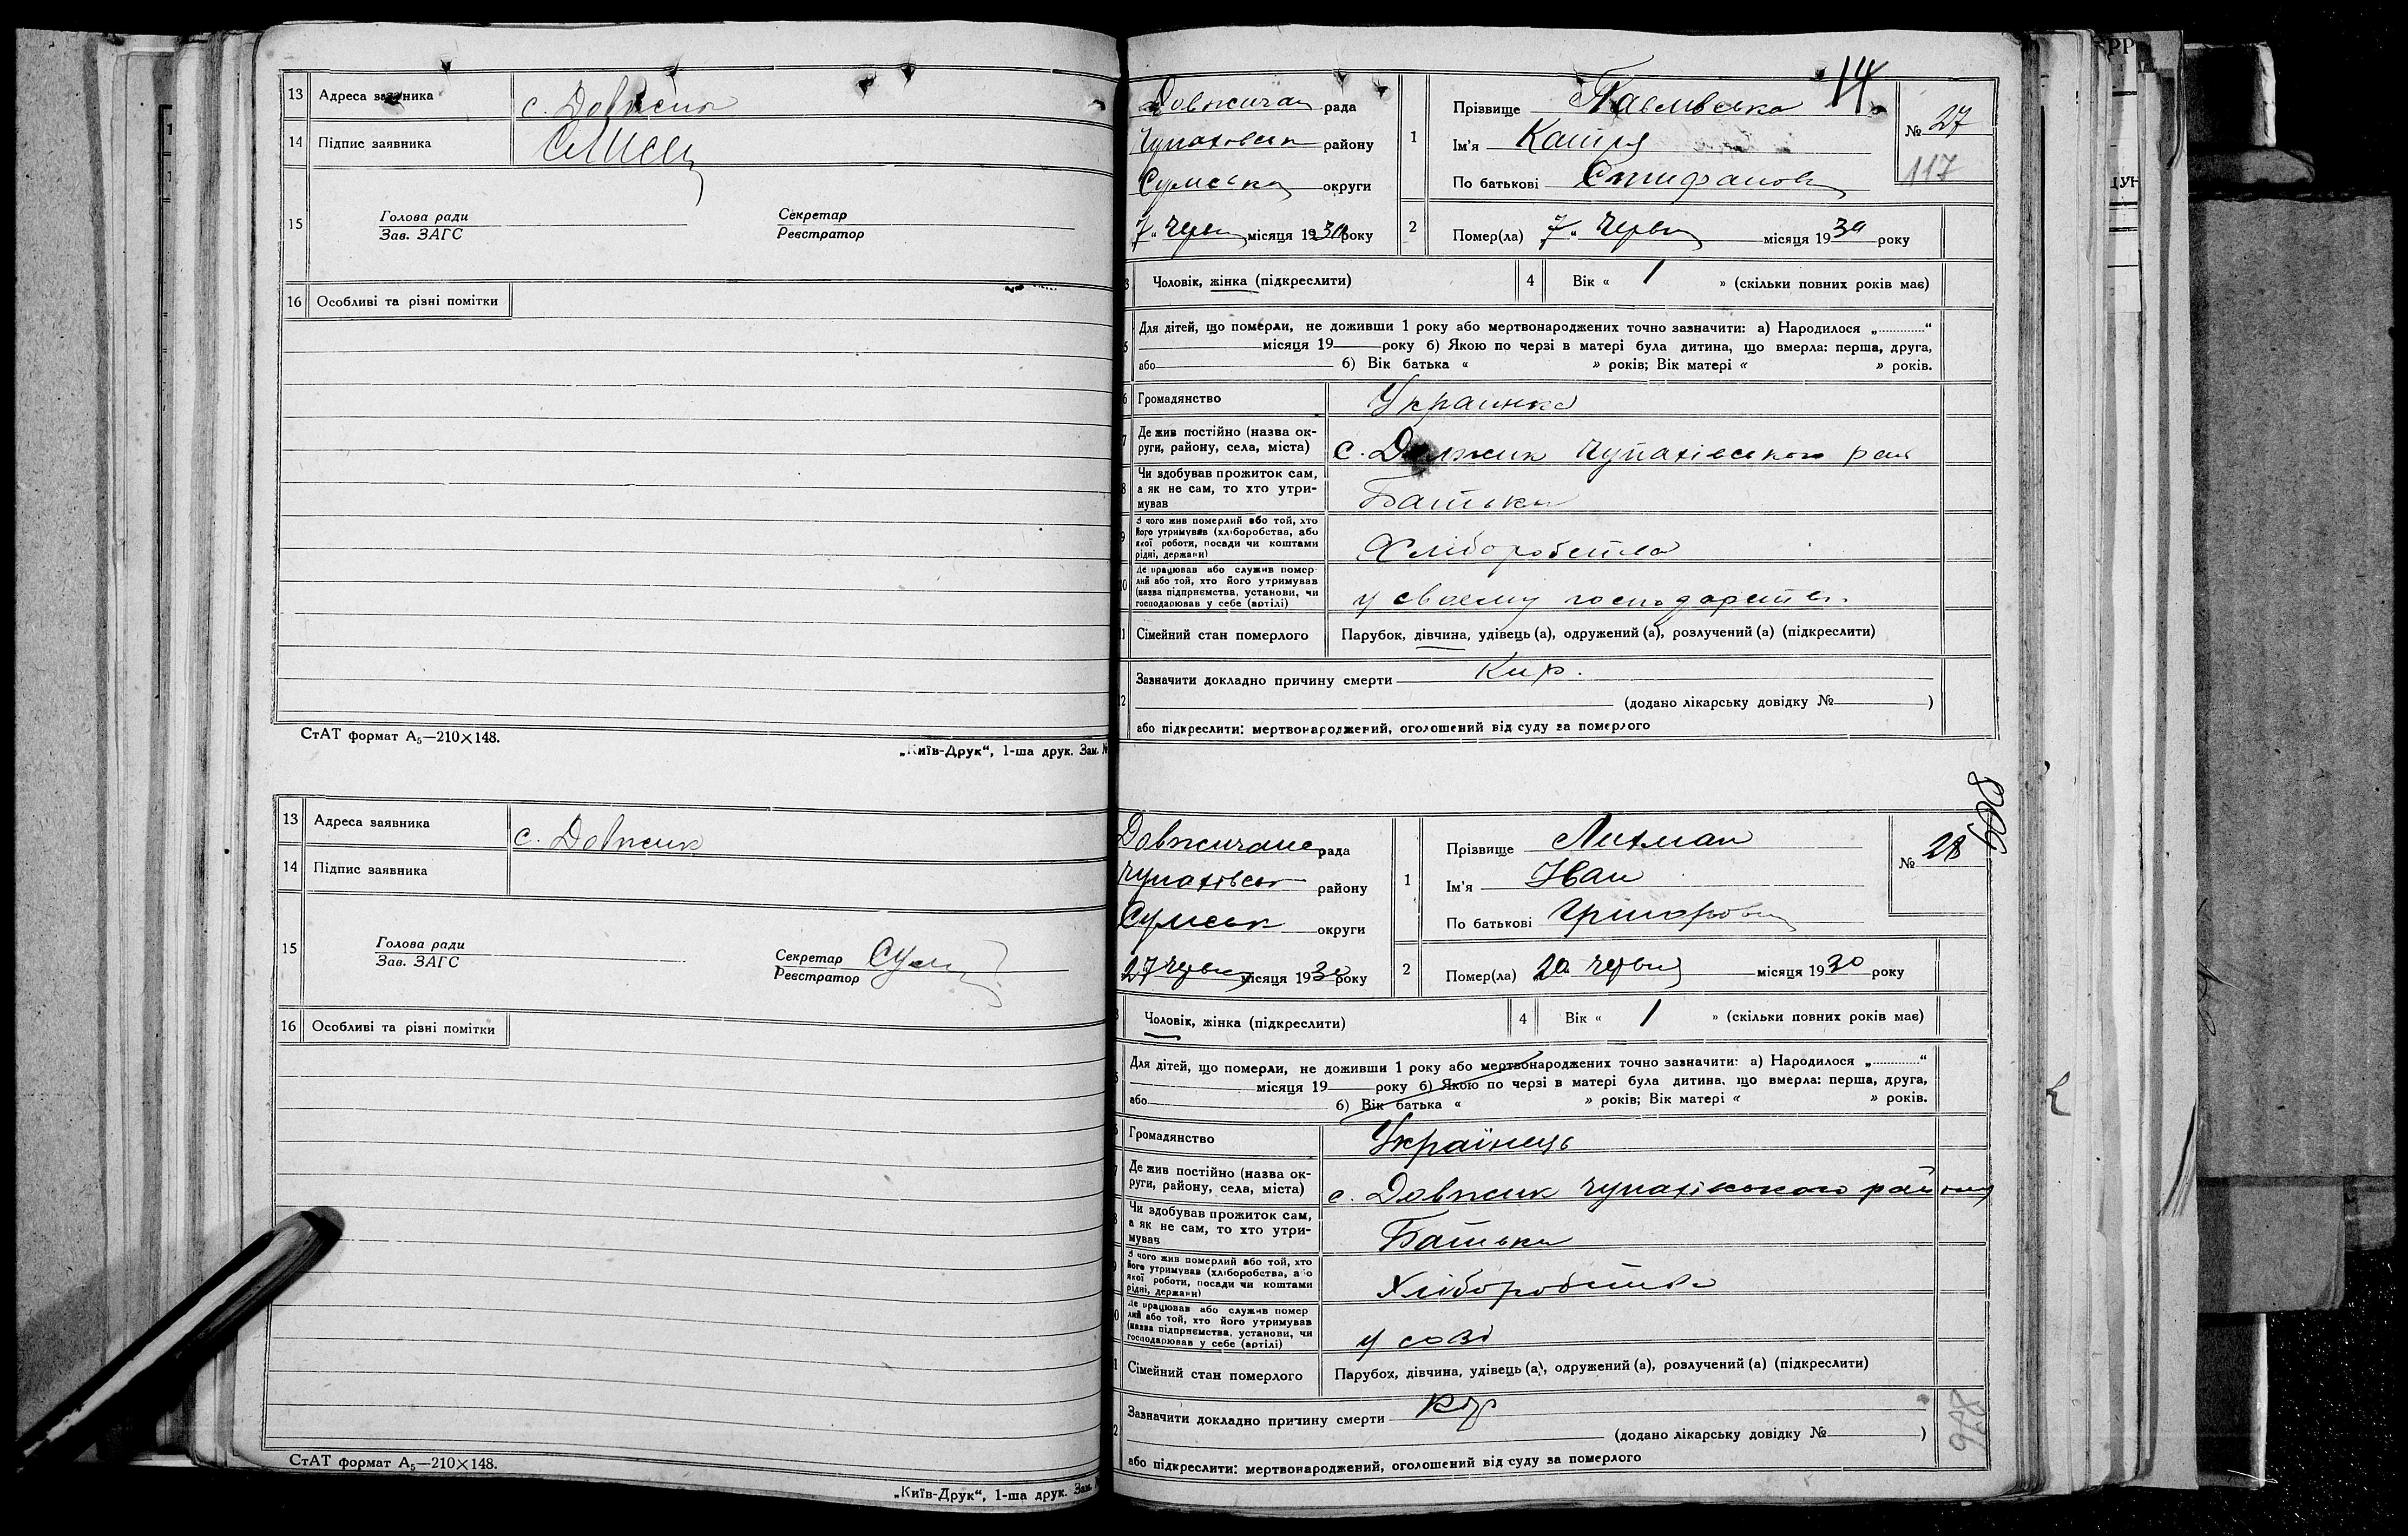 13 Адреса заявника с. Довжик
14 Підпис заявника
15 Голова ради Секретар
Зав. ЗАГС Реєстратор
16 Особливі та різні помітки
СтАТ формат А₅—210×148.
„Київ-Друк“, 1-ша друк. Зам. №
13 Адреса заявника с. Довжик
14 Підпис заявника
15 Голова ради Секретар
Зав. ЗАГС Реєстратор
16 Особливі та різні помітки
СтАТ формат А₅—210×148.
„Київ-Друк“, 1-ша друк. Зам.
14
Довжичан рада
Чупаховськ району
Сумська округи
7 „ Червн місяця 1930 року
1 Прізвище Павлівська
Ім'я Катря
По батькові Стифанов
№ 27
117
2 Помер(ла) 7 „ Червн місяця 1930 року
3 Чоловік, жінка (підкреслити) 4 Вік « 1 » (скільки повних років має)
Для дітей, що померли, не доживши 1 року або мертвонароджених точно зазначити: а) Народилося „............“
місяця 19 року б) Якою по черзі в матері була дитина, що вмерла: перша, друга,
або б) Вік батька « » років; Вік матері « » років.
6 Громадянство Украинка
7 Де жив постійно (назва ок-
руги, району, села, міста) с. Должик Чупахівського рай
8 Чи здобував прожиток сам,
а як не сам, то хто утри-
мував Батьки
9 З чого жив померлий або той, хто
його утримував (хліборобства, або
якої роботи, посади чи коштами
рідні, держави) Хліборобства
10 Де працював або служив помер
лий або той, хто його утримував
(назва підприємства, установи, чи
господарював у себе (артілі) у своему господарстві
11 Сімейний стан померлого Парубок, дівчина, удівець (а), одружений (а), розлучений (а) (підкреслити)
12 Зазначити докладно причину смерти Кир.
(додано лікарську довідку № )
або підкреслити: мертвонароджений, оголошений від суду за померлого
Довжичане рада
Чупахівськ району
Сумськ округи
27 Червн місяця 1930 року
1 Прізвище Лихман
Ім'я Иван
По батькові Григорович
№ 28
2 Помер(ла) 20 Червня місяця 1930 року
3 Чоловік, жінка (підкреслити) 4 Вік « 1 » (скільки повних років має)
Для дітей, що померли, не доживши 1 року або мертвонароджених точно зазначити: а) Народилося „............“
місяця 19 року б) Якою по черзі в матері була дитина, що вмерла: перша, друга,
або б) Вік батька « » років; Вік матері « » років.
Громадянство Українець
Де жив постійно (назва ок-
руги, району, села, міста) с. Довжик Чупахівського району
Чи здобував прожиток сам,
а як не сам, то хто утри-
мував Батьки
З чого жив померлий або той, хто
його утримував (хліборобства, або
якої роботи, посади чи коштами
рідні, держави) Хліборобства
Де працював або служив помер
лий або той, хто його утримував
(назва підприємства, установи, чи
господарював у себе (артілі) у созі
Сімейний стан померлого Парубок, дівчина, удівець (а), одружений (а), розлучений (а) (підкреслити)
Зазначити докладно причину смерти Кір
(додано лікарську довідку № )
або підкреслити: мертвонароджений, оголошений від суду за померлого